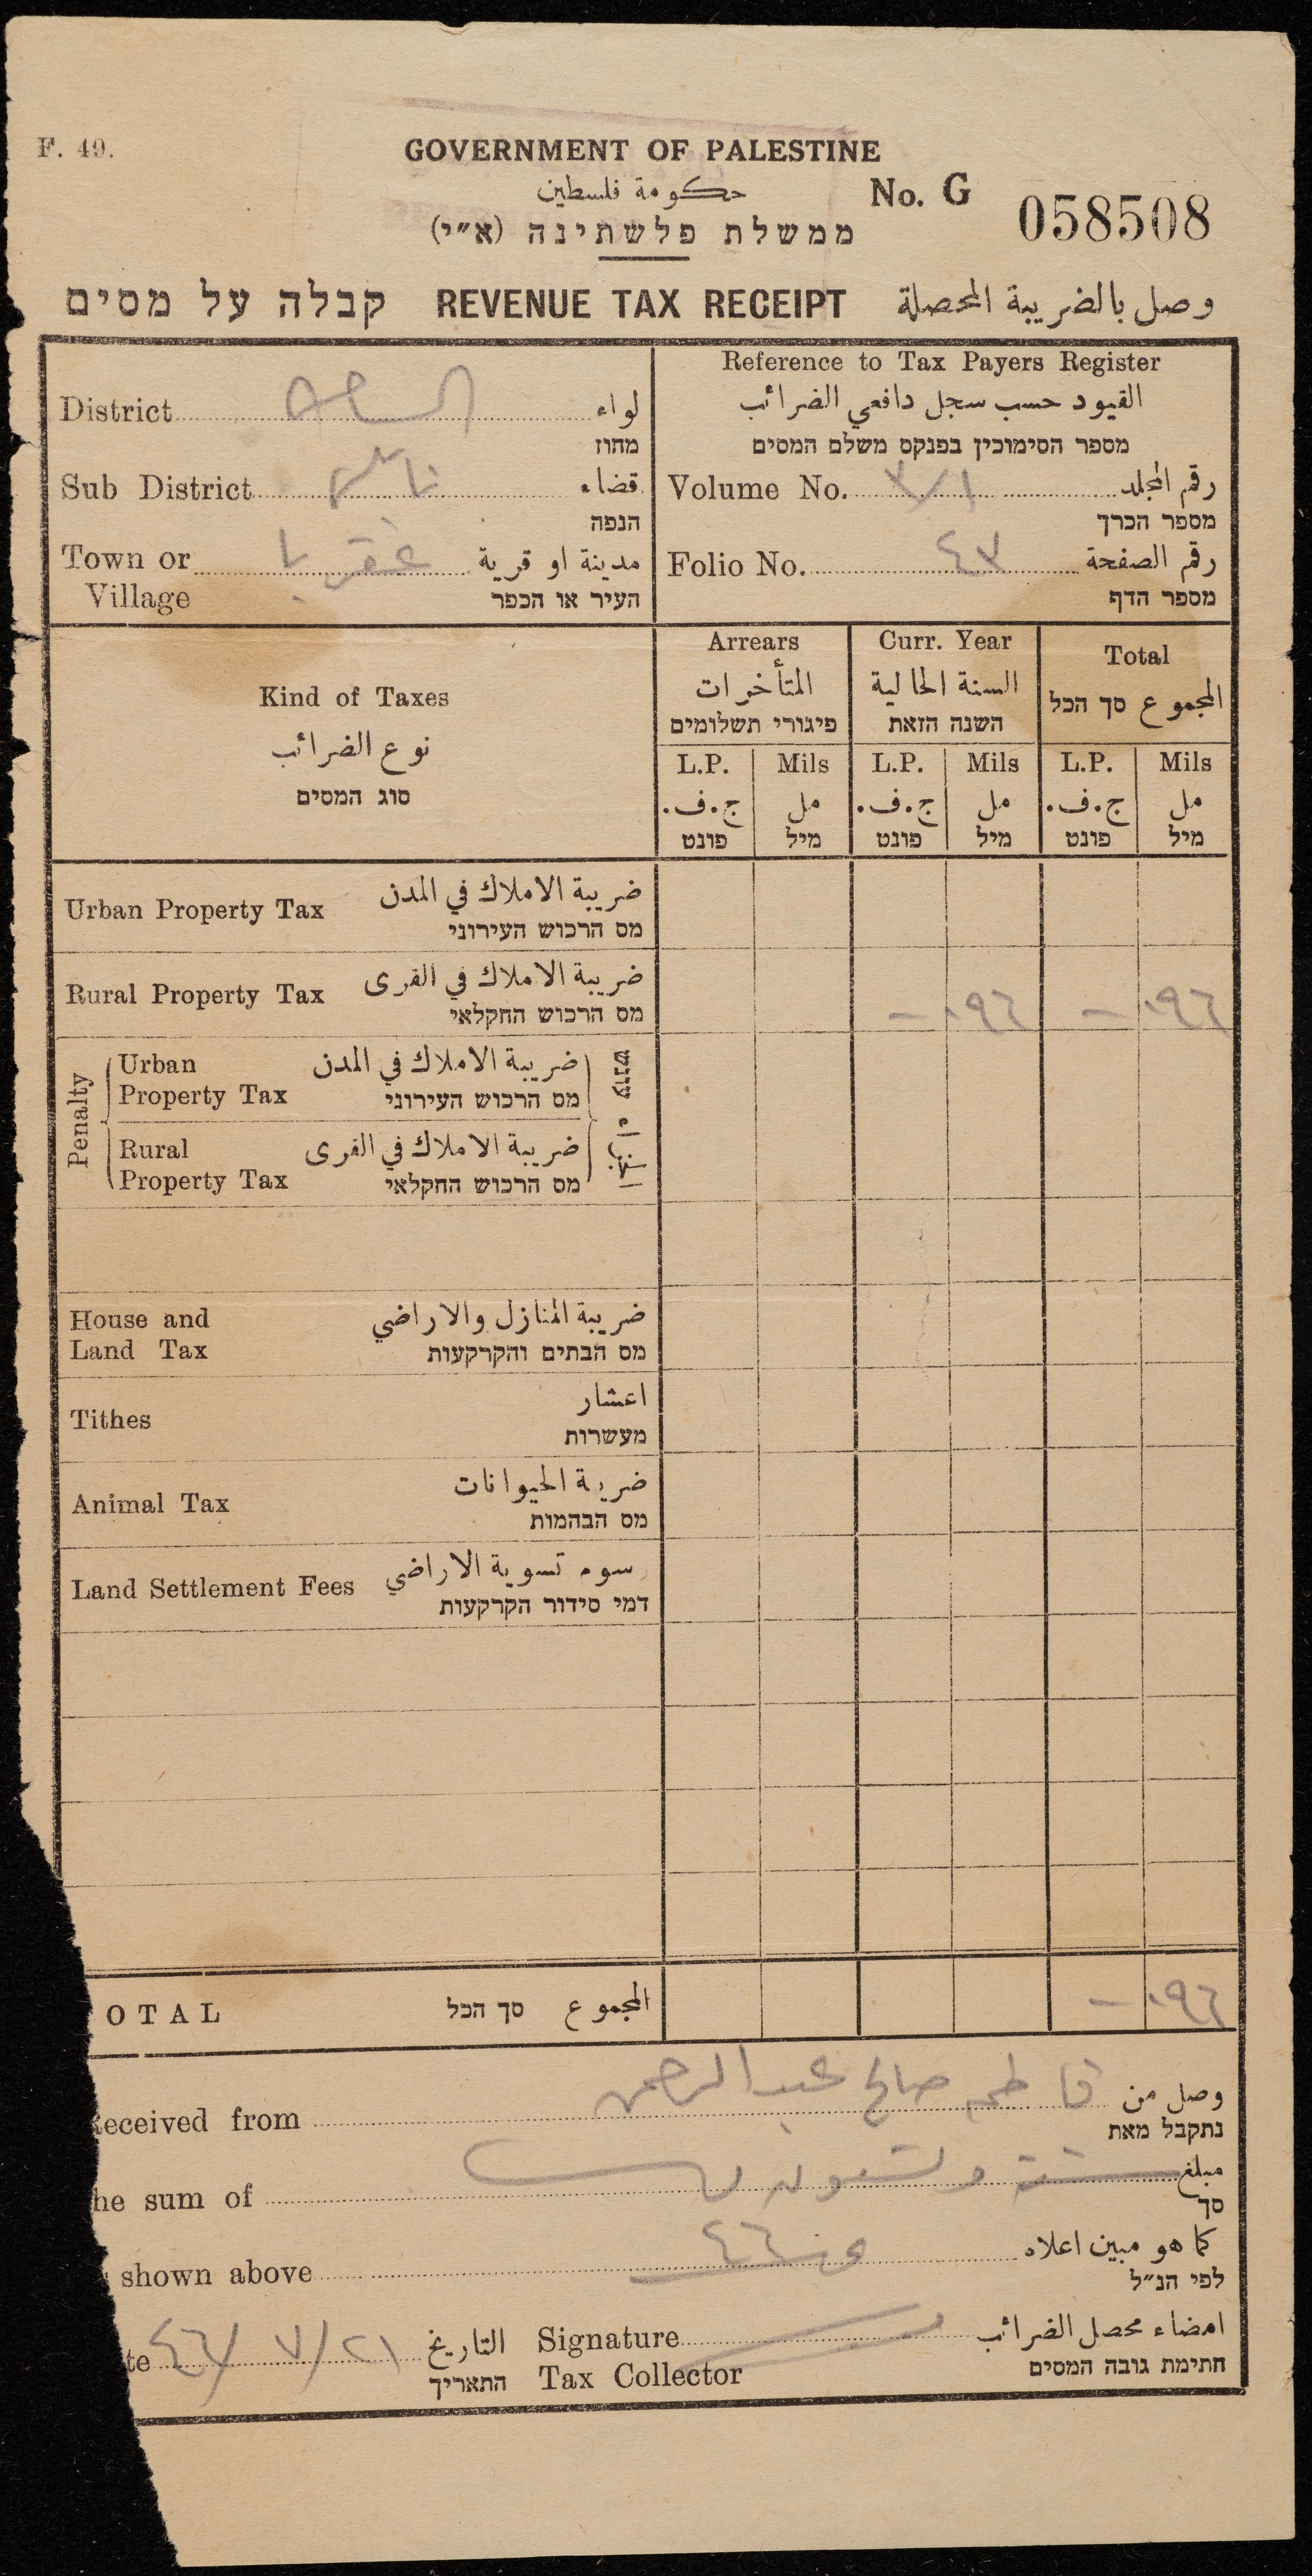 F. 49.
GOVERNMENT OF PALESTINE
حكومة فلسطين
No. G 058508
ממשלת פלשתינה (א״י)
קבלה על מסים REVENUE TAX RECEIPT وصل بالضريبة المحصلة
District لواء
מחוז
Sub District نابلس قضاء
הנפה
Town or Village عقربا مدينة او قرية
העיר או הכפר
Reference to Tax Payers Register
القيود حسب سجل دافعي الضرائب
מספר הסימוכין בפנקס משלם המסים
Volume No. رقم المجلد
מספר הכרך
Folio No. رقم الصفحة
מספר הדף
Kind of Taxes
نوع الضرائب
סוג המסים
Arrears
المتأخرات
פיגורי תשלומים
Curr. Year
السنة الحالية
השנה הזאת
Total
المجموع סך הכל
L.P. Mils L.P. Mils L.P. Mils
ج.ف. مل ج.ف. مل ج.ف. مل
פונט מיל פונט מיל פונט מיל
Urban Property Tax ضريبة الاملاك في المدن
מס הרכוש העירוני
Rural Property Tax ضريبة الاملاك في القرى
מס הרכוש החקלאי
— ٠٩٦ — ٠٩٦
Penalty
Urban Property Tax ضريبة الاملاك في المدن
מס הרכוש העירוני
עונש
Rural Property Tax ضريبة الاملاك في القرى
מס הרכוש החקלאי
House and Land Tax ضريبة المنازل والاراضي
מס הבתים והקרקעות
Tithes اعشار
מעשרות
Animal Tax ضريبة الحيوانات
מס הבהמות
Land Settlement Fees رسوم تسوية الاراضي
דמי סידור הקרקעות
OTAL סך הכל المجموع — ٠٩٦
Received from فاطمه صالح عبد الرحمن وصل من
נתקבל מאת
he sum of ستة وتسعون مبلغ
סך
shown above كما هو مبين اعلاه
לפי הנ״ל
te ٤٦/ ٧/٢١ التاريخ
התאריך
Signature Tax Collector امضاء محصل الضرائب
חתימת גובה המסים